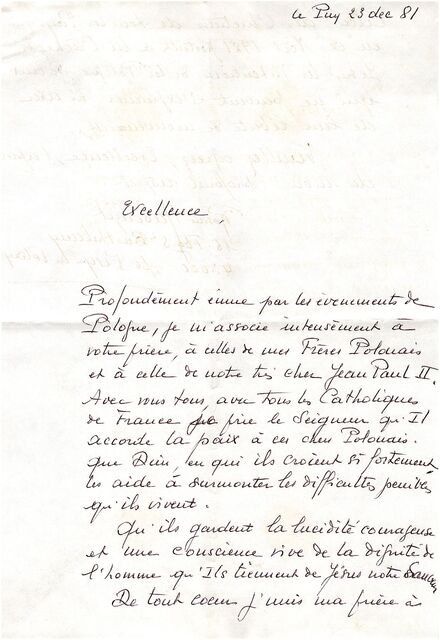 Le Puy 23 dec 81
Excellence,
Profondément émue par les évenements de
Pologne, je m'associe intensément à
votre prière, à celles de mes Frères Polonais
et à celle de notre très cher Jean Paul II.
Avec vous tous, avec tous les Catholiques
de France je prie le Seigneur qu'Il
accorde la paix à ces chers Polonais.
que Dieu, en qui ils croient si fortement
les aide à surmonter les difficultés penibles
qu'ils vivent.
Qu'ils gardent la lucidité courageuse
et une conscience vive de la dignité de
l'homme qu'Ils tiennent de Jésus notre Sauveur
De tout coeur j'unis ma prière à